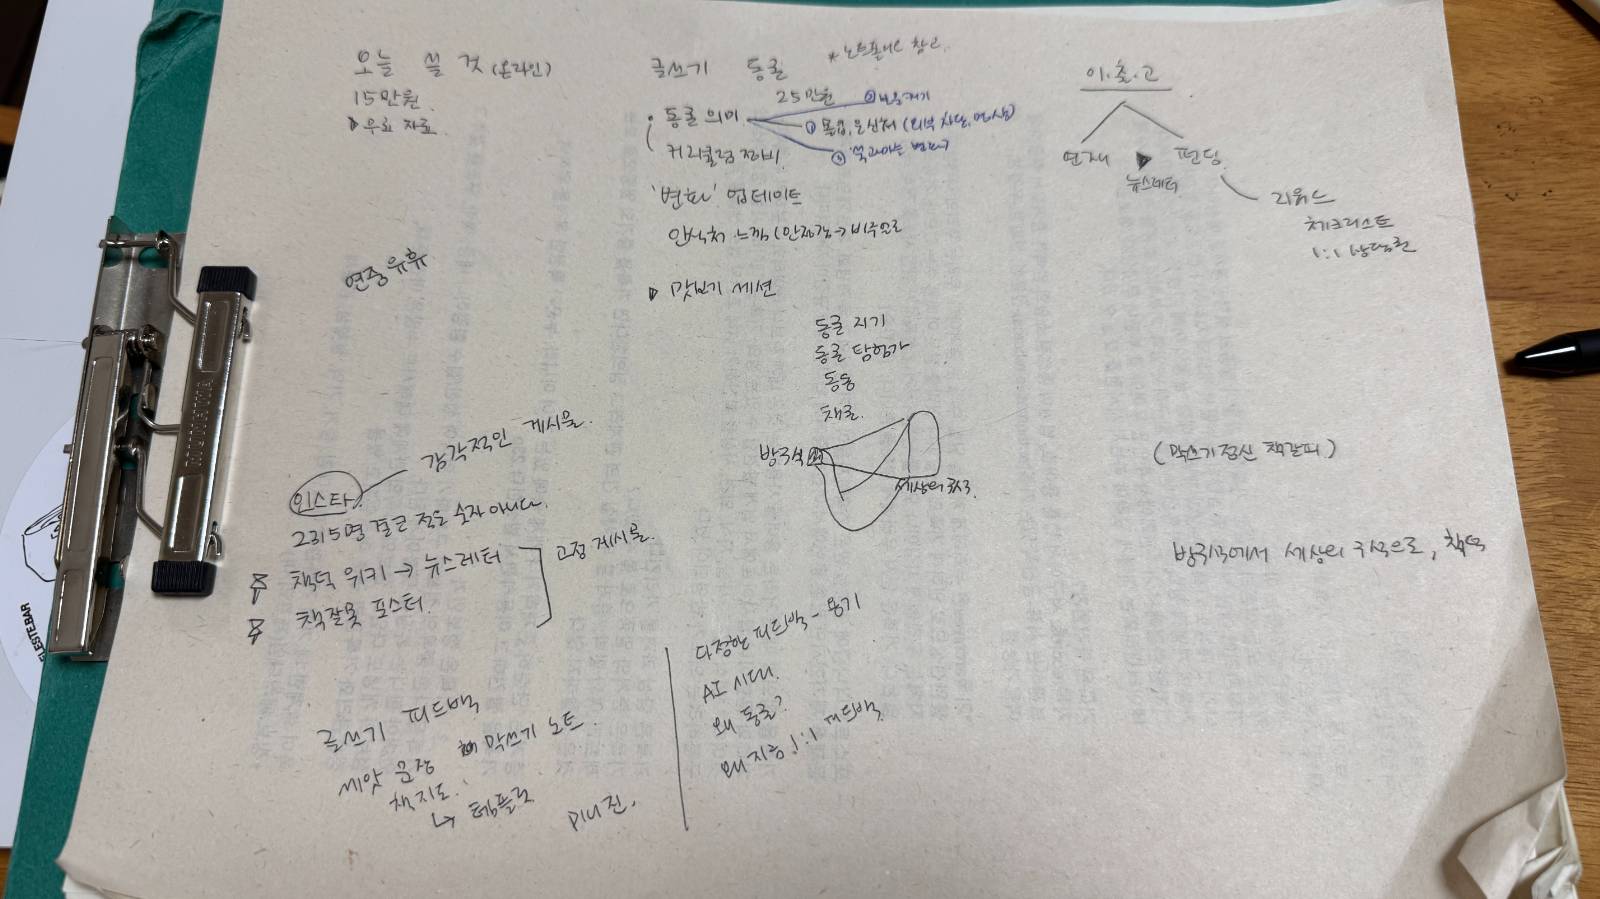 오늘 쓸 것 (온라인)
15만원
▶ 무료 자료
연중유휴
글쓰기 동굴
* 노트폴리오 참고
25만원
• 동굴 의미
①몰입, 은신처 (외부 차단,
커리큘럼 정비
'변화' 업데이트
안식처 느낌 (안정감 → 비주얼로
▶ 맛보기 세션
동굴 지기
동굴 탐험가
동동
채굴
방구석
세상의 구석
이.출.고
연재 ▶ 펀딩
뉴스레터
리워드
체크리스트
1:1 상담권
(막쓰기정신 책갈피)
방구석에서 세상의 구석으로, 책덕
인스타
감각적인 게시물.
2315명 결코 적은 숫자 아니다.
책덕 위키 → 뉴스레터
책잘못 포스터.
고정 게시물.
글쓰기 피드백
씨앗 문장
막쓰기 노트
책지도.
↳ 템플릿
미니진.
다정한 피드백 - 용기
AI 시대.
왜 동굴?
왜 지금 1:1 피드백
ELESTEBAR